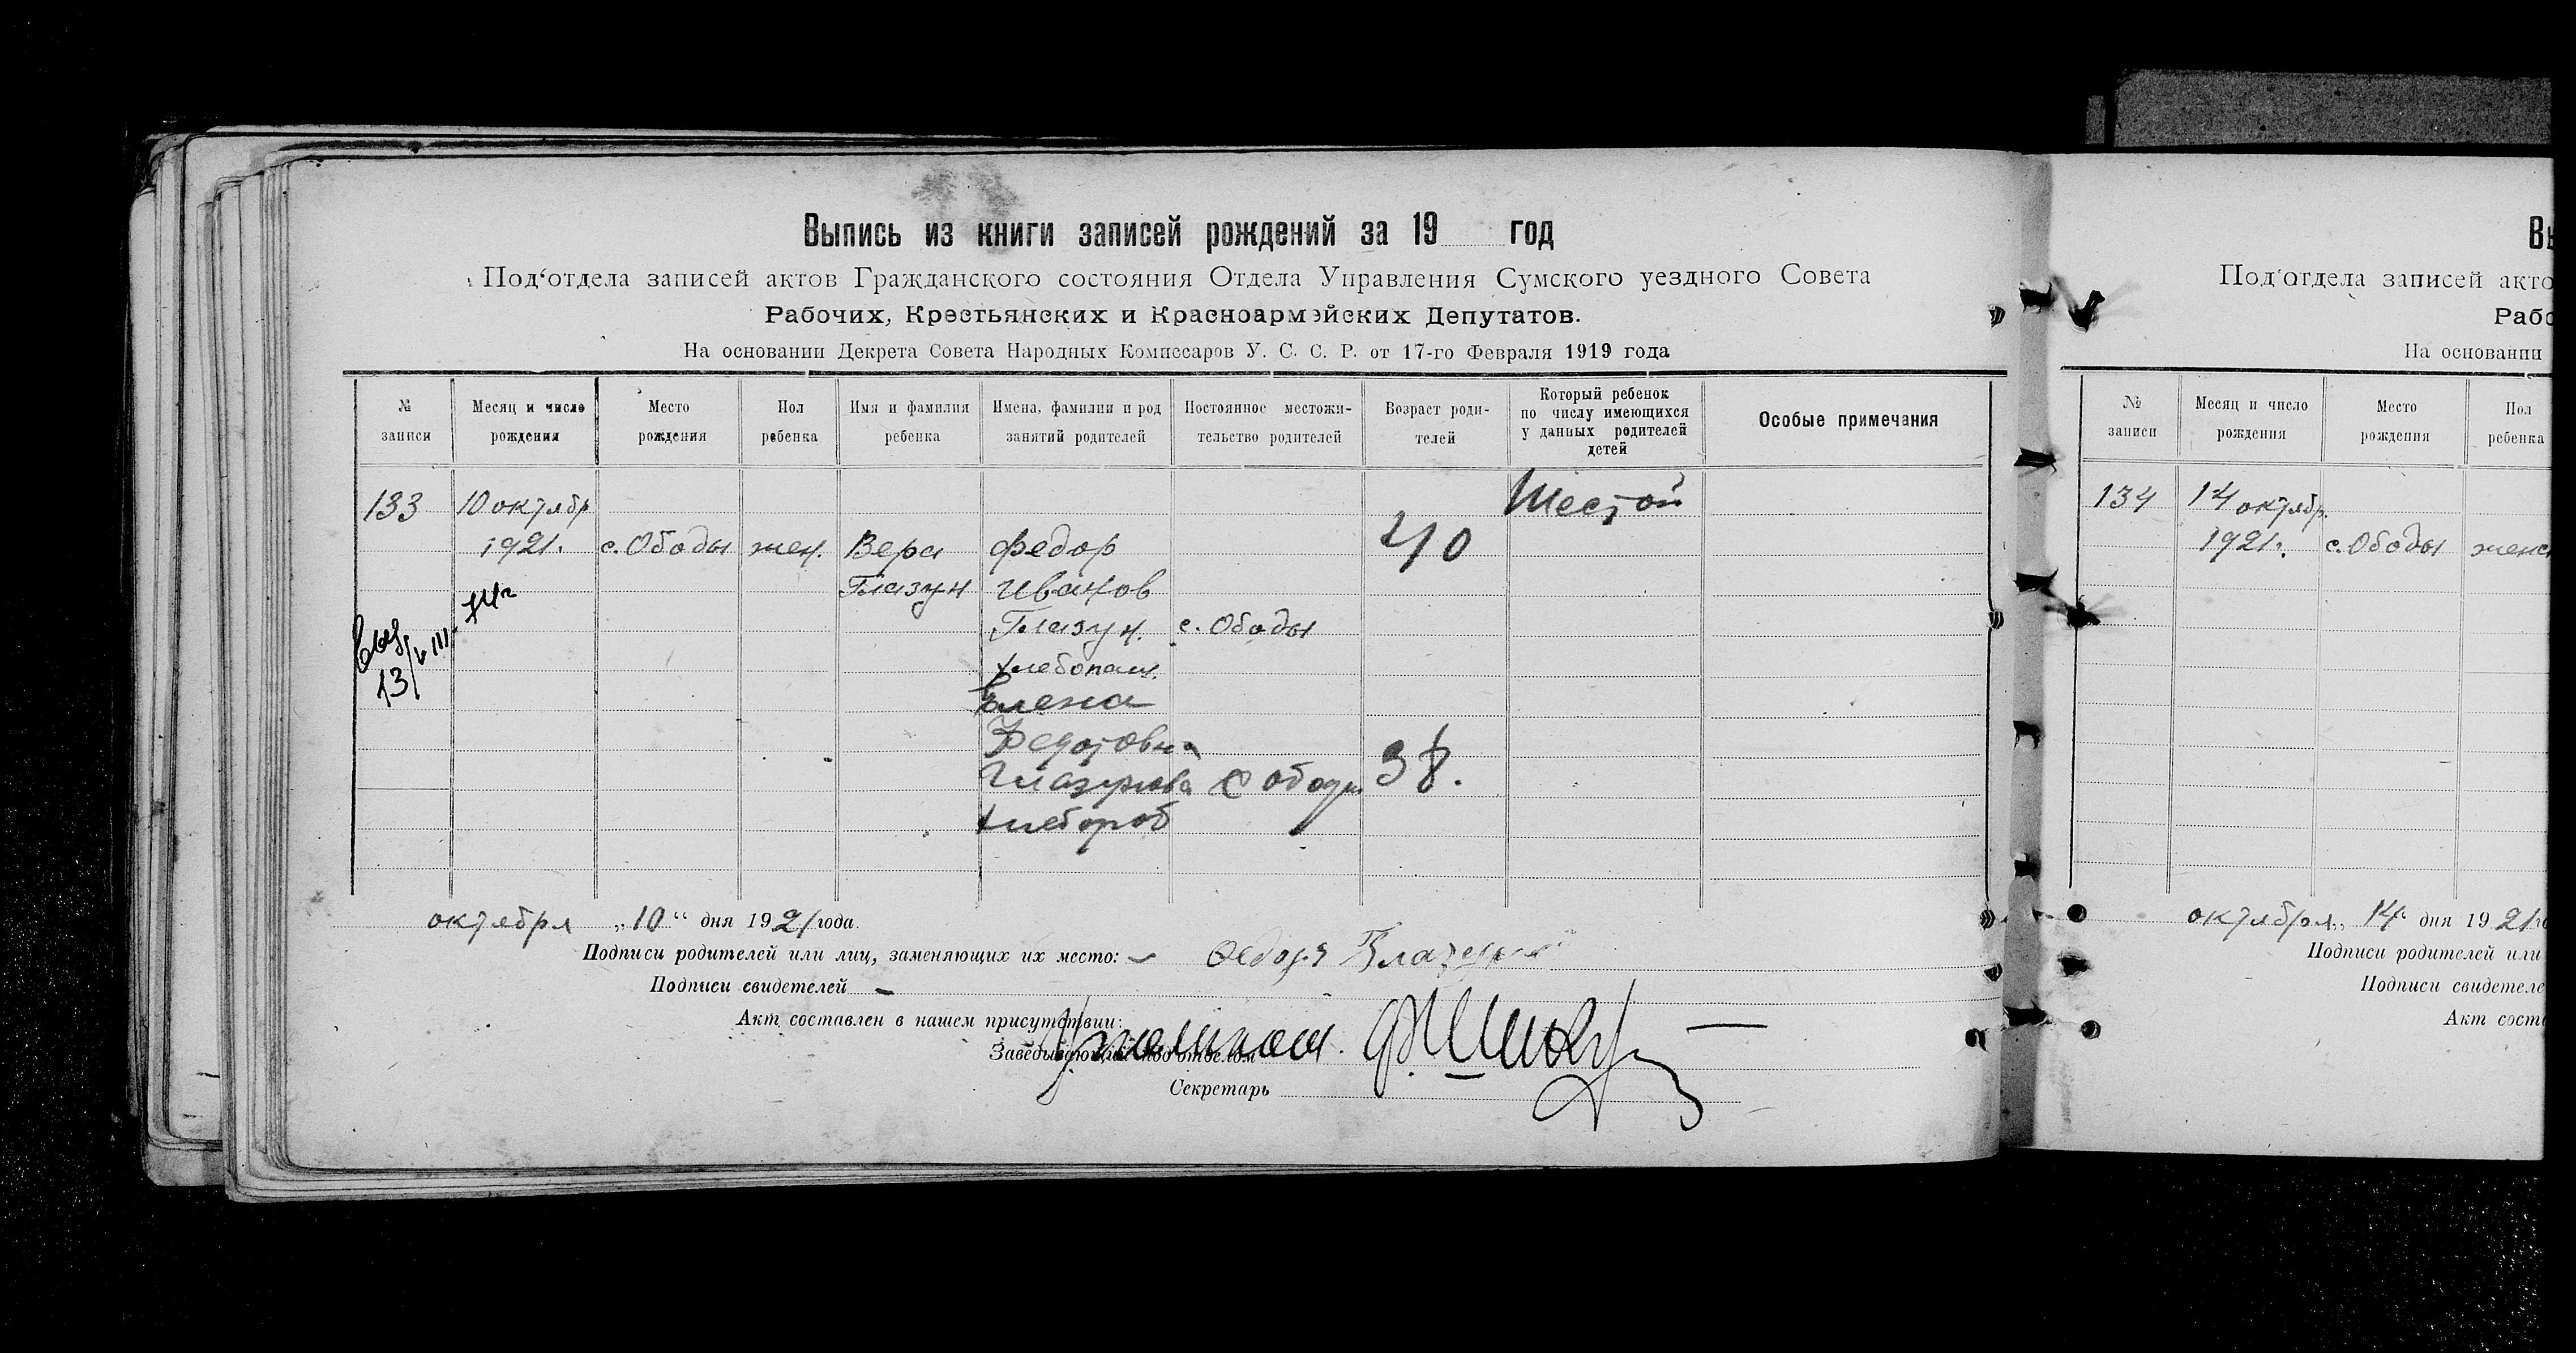 Выпись из книги записей рождений за 19 год
Под‘отдела записей актов Гражданского состояния Отдела Управления Сумского уездного Совета
Рабочих, Крестьянских и Красноармейских Депутатов.
На основании Декрета Совета Народных Комиссаров У. С. С. Р. от 17-го Февраля 1919 года
№ записи
Месяц и число рождения
Место рождения
Пол ребенка
Имя и фамилия ребенка
Имена, фамилии и род занятий родителей
Постоянное местожительство родителей
Возраст родителей
Который ребенок по числу имеющихся у данных родителей детей
Особые примечания
133
10 октябр
1921.
с. Ободы
жен.
Вера
Глазун
Федор
Иванов
Глазун.
хлебопаш.
Елена
Федотовна
Глазунова
хлебороб
с. Ободы
с Ободы
40
38.
Шестой
13/VIII
октября „10“ дня 1921 года.
Подписи родителей или лиц, заменяющих их место: –
Подписи свидетелей –
Акт составлен в нашем присутствии:
Заведывающий под‘отделом
Секретарь
Вы
Под‘отдела записей акто
Рабо
На основании
№ записи
Месяц и число рождения
Место рождения
Пол ребенка
134
14 октябр.
1921.
с. Ободы
женс
октября „14“ дня 1921 го
Подписи родителей или
Подписи свидетеле
Акт соста